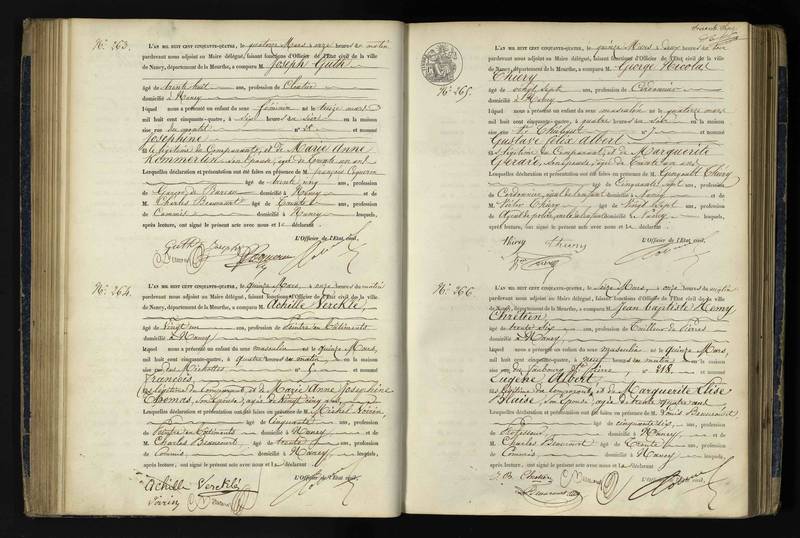 N.° 263.
L'AN MIL HUIT CENT CINQUANTE-QUATRE, le quatorze Mars, à onze heures du matin
pardevant nous adjoint au Maire délégué, faisant fonctions d'Officier de l'État civil de la ville
de Nancy, département de la Meurthe, a comparu M. Joseph Guth
âgé de trente huit ans, profession de
domicilié à Nancy
lequel nous a présenté un enfant du sexe féminin né le treize mars
mil huit cent cinquante-quatre, à sept heures du soir en la maison
sise rue n° et nommé
Joséphine
fille légitime du Comparant, et de Marie Anne
Kommerlen son épouse, âgée de trente un ans
Lesquelles déclaration et présentation ont été faites en présence de M. françois
âgé de trente cinq ans, profession
de Garçon de Bureau domicilié à Nancy et de
M. Charles Beaucourt âgé de trente ans, profession de
Commis domicilié à Nancy lesquels,
après lecture, ont signé le présent acte avec nous et le déclarant
L'Officier de l'État civil,
Guth Joseph
N.° 264.
L'AN MIL HUIT CENT CINQUANTE-QUATRE, le quinze Mars, à onze heures du matin
pardevant nous adjoint au Maire délégué, faisant fonctions d'Officier de l'État civil de la ville
de Nancy, département de la Meurthe, a comparu M. Achille Verckle,
âgé de Vingt un ans, profession de Peintre en Bâtiments
domicilié à Nancy
lequel nous a présenté un enfant du sexe masculin né le quinze Mars,
mil huit cent cinquante-quatre, à quatre heures du matin en la maison
sise rue des n° et nommé
François
fils légitime du Comparant, et de Marie Anne Joséphine
Thomas, son épouse, âgée de vingt cinq ans,
Lesquelles déclaration et présentation ont été faites en présence de M. Michel Noirin,
âgé de Cinquante ans, profession
de Peintre en Bâtiments domicilié à Nancy et de
M. Charles Beaucourt, âgé de trente ans, profession de
Commis, domicilié à Nancy lesquels,
après lecture, ont signé le présent acte avec nous et le déclarant
L'Officier de l'État civil,
Achille Verckle
N.° 265.
L'AN MIL HUIT CENT CINQUANTE-QUATRE, le quinze Mars à deux heures du soir
pardevant nous adjoint au Maire délégué, faisant fonctions d'Officier de l'État civil de la ville
de Nancy, département de la Meurthe, a comparu M. George Nicolas
Thiery
âgé de vingt sept ans, profession de Cordonnier
domicilié à Nancy
lequel nous a présenté un enfant du sexe masculin né le quatorze mars
mil huit cent cinquante-quatre, à quatre heures du soir en la maison
sise rue n° 7 et nommé
Gustave félix Albert
fils légitime du Comparant, et de Marguerite
Gérard, son épouse, âgée de trente ans
Lesquelles déclaration et présentation ont été faites en présence de M. Thiery
âgé de Cinquante sept ans, profession
de Cordonnier, domicilié à Nancy et de
M. Victor Thiery âgé de vingt sept ans, profession
d'Agent de police, domicilié à Nancy lesquels,
après lecture, ont signé le présent acte avec nous et le déclarant
L'Officier de l'État civil,
thiery thiery
N.° 266
L'AN MIL HUIT CENT CINQUANTE-QUATRE, le seize Mars, à onze heures du matin
pardevant nous adjoint au Maire délégué, faisant fonctions d'Officier de l'État civil de la ville
de Nancy, département de la Meurthe, a comparu M. Jean Baptiste Remy
Chrétien,
âgé de trente six ans, profession de Tailleur de Pierres
domicilié à Nancy
lequel nous a présenté un enfant du sexe masculin né le quinze Mars,
mil huit cent cinquante-quatre, à neuf heures du matin en la maison
sise rue du faubourg St. Pierre n° 218, et nommé
Eugène Albert,
fils légitime du Comparant, et de Marguerite Elise
Blaise, son épouse, âgée de trente quatre ans
Lesquelles déclaration et présentation ont été faites en présence de M. Louis Beaucourt
âgé de cinquante six, ans, profession
de Professeur, domicilié à Nancy, et de
M. Charles Beaucourt âgé de trente ans, profession de
Commis, domicilié à Nancy lesquels,
après lecture, ont signé le présent acte avec nous et le déclarant
L'Officier de l'État civil,
J. B. Chretien